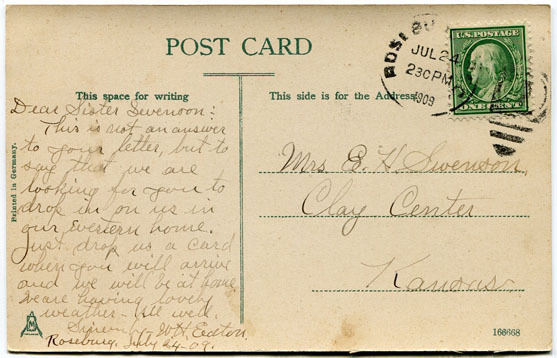 POST CARD
This space for writing
This side is for the Address
Printed in Germany.
Dear Sister Swenson:
This is not an answer
to your letter, but to
say that we are
looking for you to
drop in on us in
our Western home.
Just drop us a card
when you will arrive
and we will be at home
We are having lovely
weather - All well.
Sincerely - W H Eaton
Roseburg, July 24-09.
ROSEBU
JUL 24
230PM
1909
U.S. POSTAGE
ONE CENT
Mrs E. H Swenson,
Clay Center
Kansas
166668